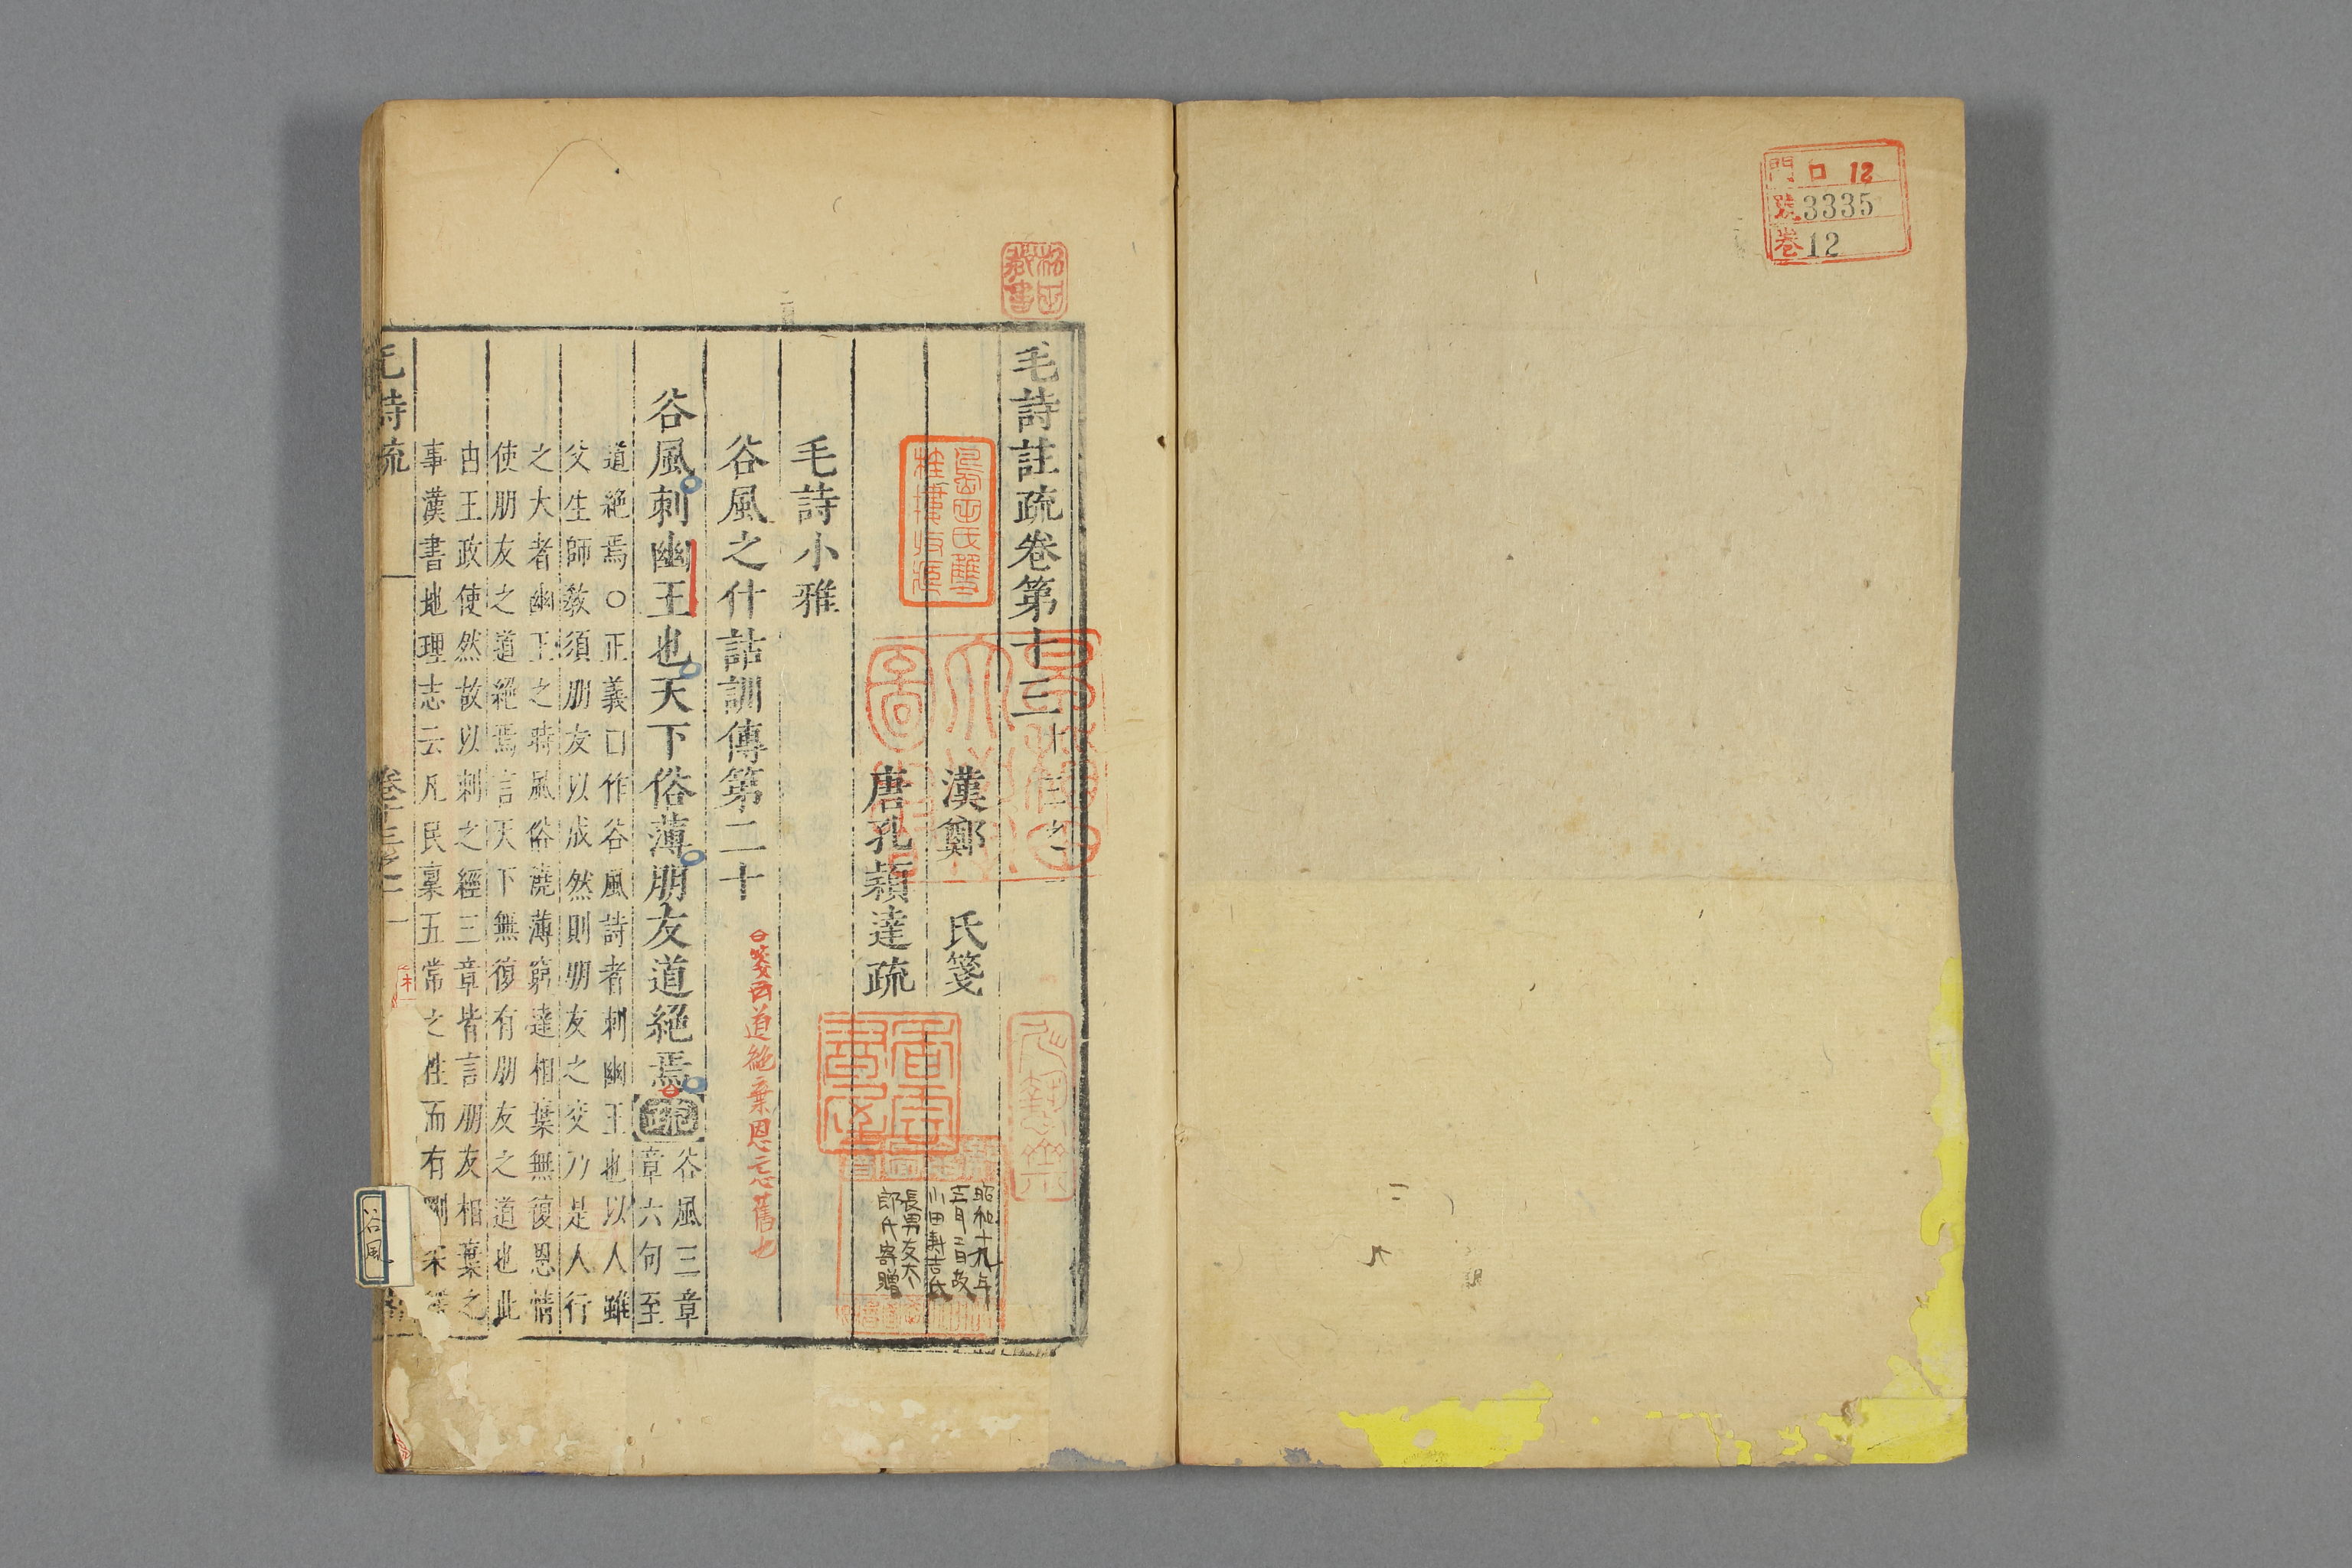 門 口 12
號 3335
卷 12
毛詩註疏卷第十三
漢鄭 氏箋
唐孔穎達疏
毛詩小雅
谷風之什詁訓傳第二十
箋云道絶棄恩忘舊也
谷風刺幽王也天下俗薄朋友道絕焉疏
谷風三章
章六句至
道絶焉○正義曰作谷風詩者刺幽王也以人雖
父生師教須朋友以成然則朋友之交乃是人行
之大者幽王之時風俗澆薄窮達相棄無復恩情
使朋友之道絕焉言天下無復有朋友之道也此
由王政使然故以刺之經三章皆言朋友相棄之
事漢書地理志云凡民稟五常之性而有剛柔
毛詩疏
卷十三之一
一
昭和十九年
三月二日故
小田寿吉氏
長男友太
郎氏寄贈
谷風